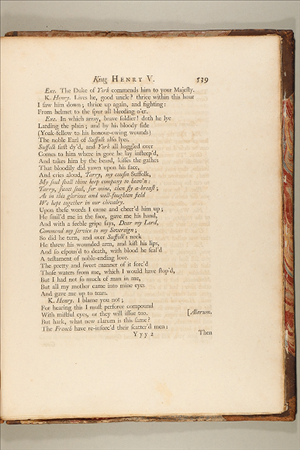 King HENRY V. 539
Exe. The Duke of York commends him to your Majesty.
K. Henry. Lives he, good uncle? thrice within this hour
I saw him down; thrice up again, and fighting:
From helmet to the spur all bleeding o'er.
Exe. In which array, brave soldier! doth he lye
Larding the plain; and by his bloody side
(Yoak-fellow to his honour-owing wounds)
The noble Earl of Suffolk also lyes.
Suffolk first dy'd, and York all hagled over
Comes to him where in gore he lay insteep'd,
And takes him by the beard, kisses the gashes
That bloodily did yawn upon his face,
And cries aloud, Tarry, my cousin Suffolk,
My soul shall thine keep company to heav'n:
Tarry, sweet soul, for mine, then fly a-breast;
As in this glorious and well-foughten field
We kept together in our chivalry.
Upon these words I came and cheer'd him up;
He smil'd me in the face, gave me his hand,
And with a feeble gripe says, Dear my Lord,
Commend my service to my Sovereign;
So did he turn, and over Suffolk's neck
He threw his wounded arm, and kist his lips,
And so espous'd to death, with blood he seal'd
A testament of noble-ending love.
The pretty and sweet manner of it forc'd
Those waters from me, which I would have stop'd,
But I had not so much of man in me,
But all my mother came into mine eyes
And gave me up to tears.
K. Henry. I blame you not;
For hearing this I must perforce compound
With mistful eyes, or they will issue too. [Alarum.
But hark, what new alarum is this same?
The French have re-inforc'd their scatter'd men:
Y y y 2 Then